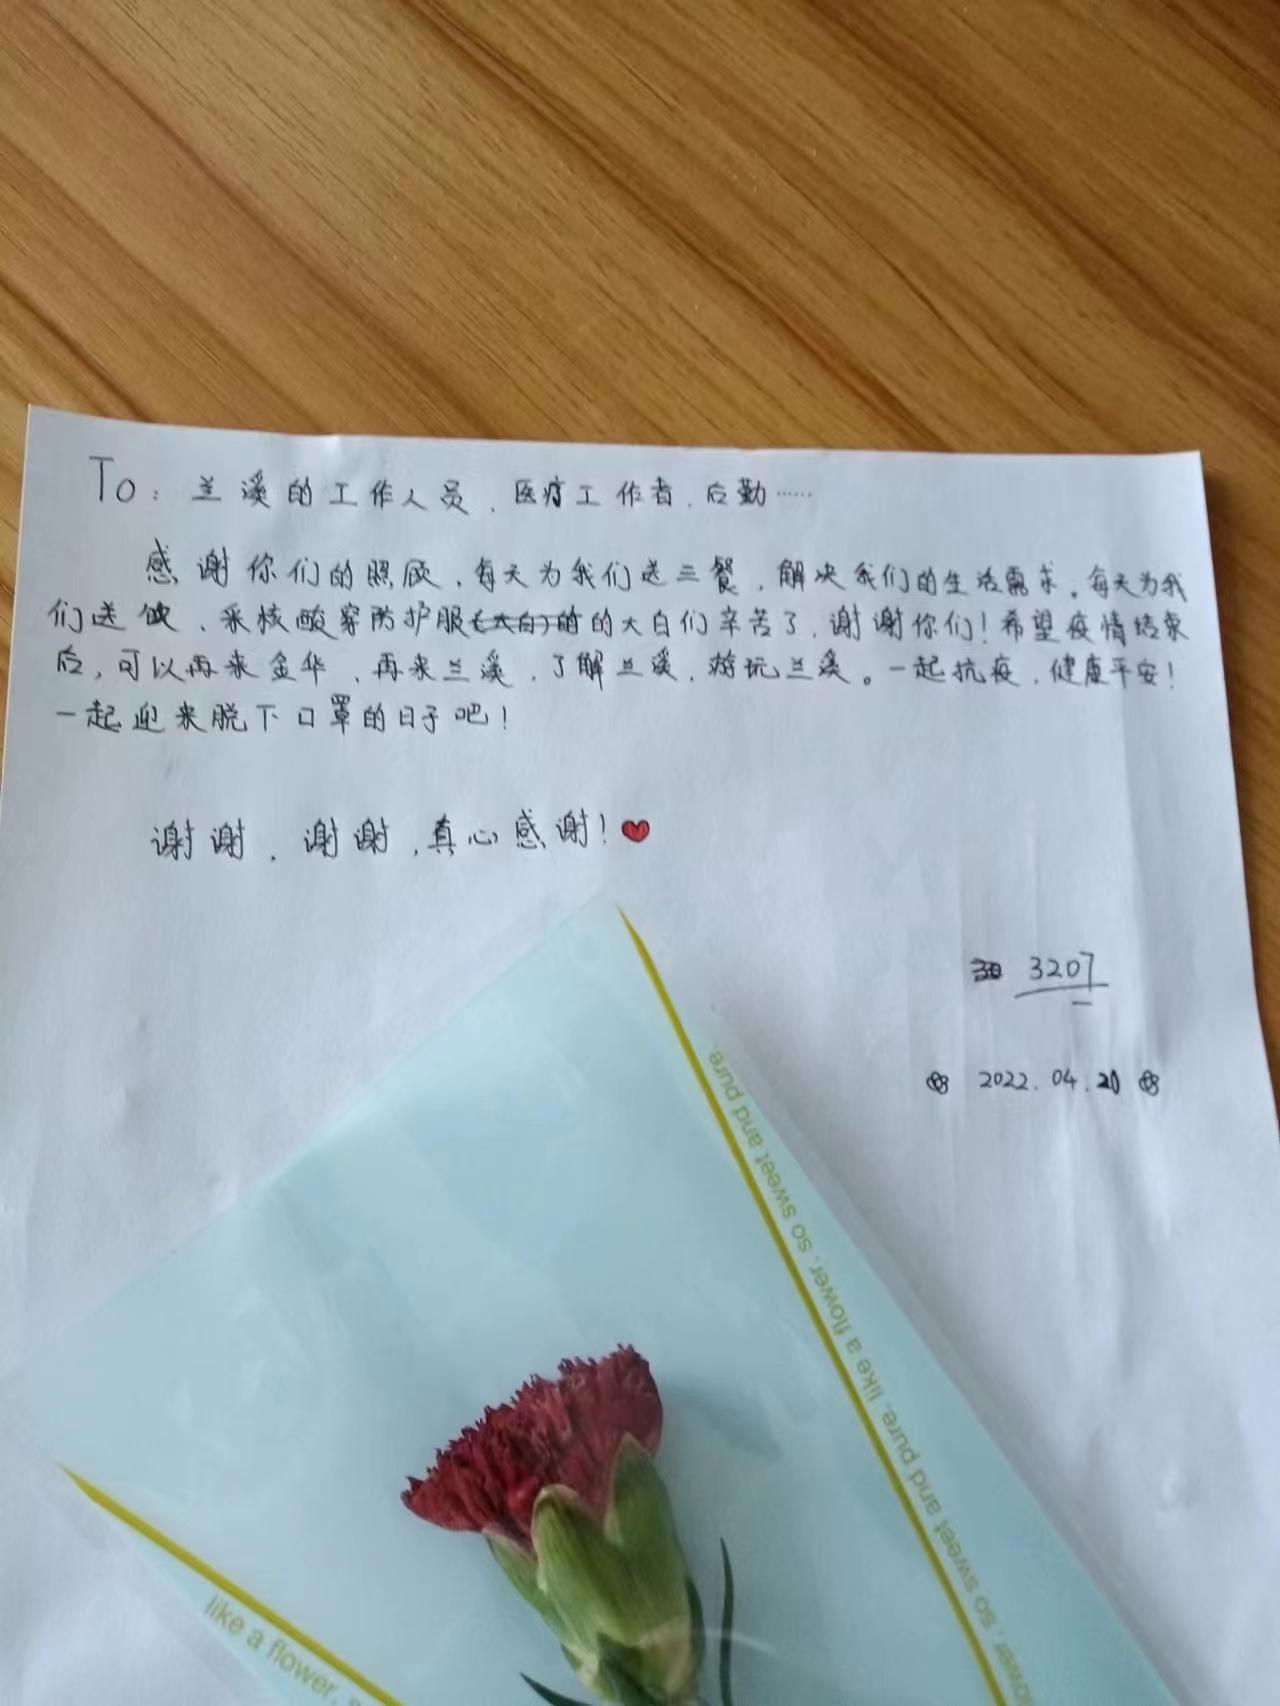 To：兰溪的工作人员、医疗工作者、后勤……
感谢你们的照顾，每天为我们送三餐，解决我们的生活需求。每天为我
们送饭、采核酸穿防护服的大白们辛苦了，谢谢你们！希望疫情结束
后，可以再来金华、再来兰溪，了解兰溪，游玩兰溪。一起抗疫，健康平安！
一起迎来脱下口罩的日子吧！
谢谢，谢谢，真心感谢！
3207
2022.04.20
like a flower, so sweet and pure, like a flower, so sweet and pure.
like a flower, s